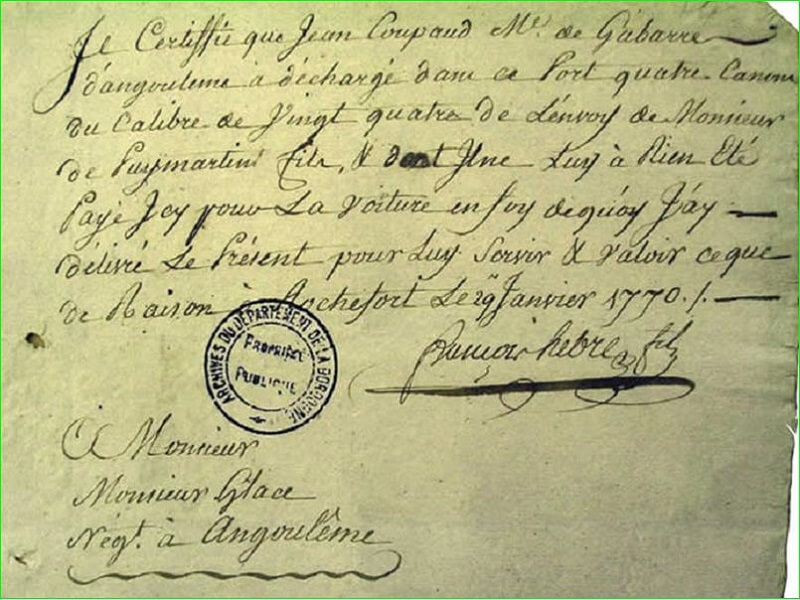 Je Certiffie que Jean Coupaud Me. de Gabarre
d'angouleme à déchargé dans ce Port quatre Canons
du Calibre de Vingt quatre de L'envoy de Monsieur
de Puymartin fils, & dont Jl ne Luy à Rien Eté
Payé Jcy pour La Voiture en foy de quoy J'áy
délivré Le Présent pour Luy Servir & valoir ce que
de Raison à Rochefort Le 29 Janvier 1770 ./.
françois hebre fils
ARCHIVES DU DÉPARTEMENT DE LA DORDOGNE
PROPRIÉTÉ
PUBLIQUE
A Monsieur
Monsieur Glace
Négt. à Angoulême